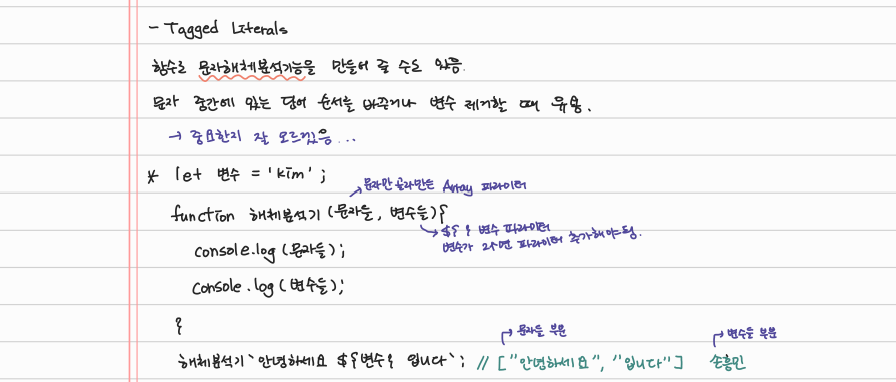 - Tagged Literals
함수로 문자해체분석기능을 만들어 줄 수도 있음.
문자 중간에 있는 단어 순서를 바꾸거나 변수 제거할 때 유용.
→ 중요한지 잘 모르겠음...
* let 변수 = 'kim';
→ 문자만 골라만든 Array 파라미터
function 해체분석기 (문자들, 변수들){
→ ${ } 변수 파라미터
변수가 2개면 파라미터 추가해야됨.
console.log (문자들);
console.log (변수들);
}
→ 문자들 부분 → 변수들 부분
해체분석기`안녕하세요 ${변수} 입니다`; // ["안녕하세요", "입니다"] 손흥민